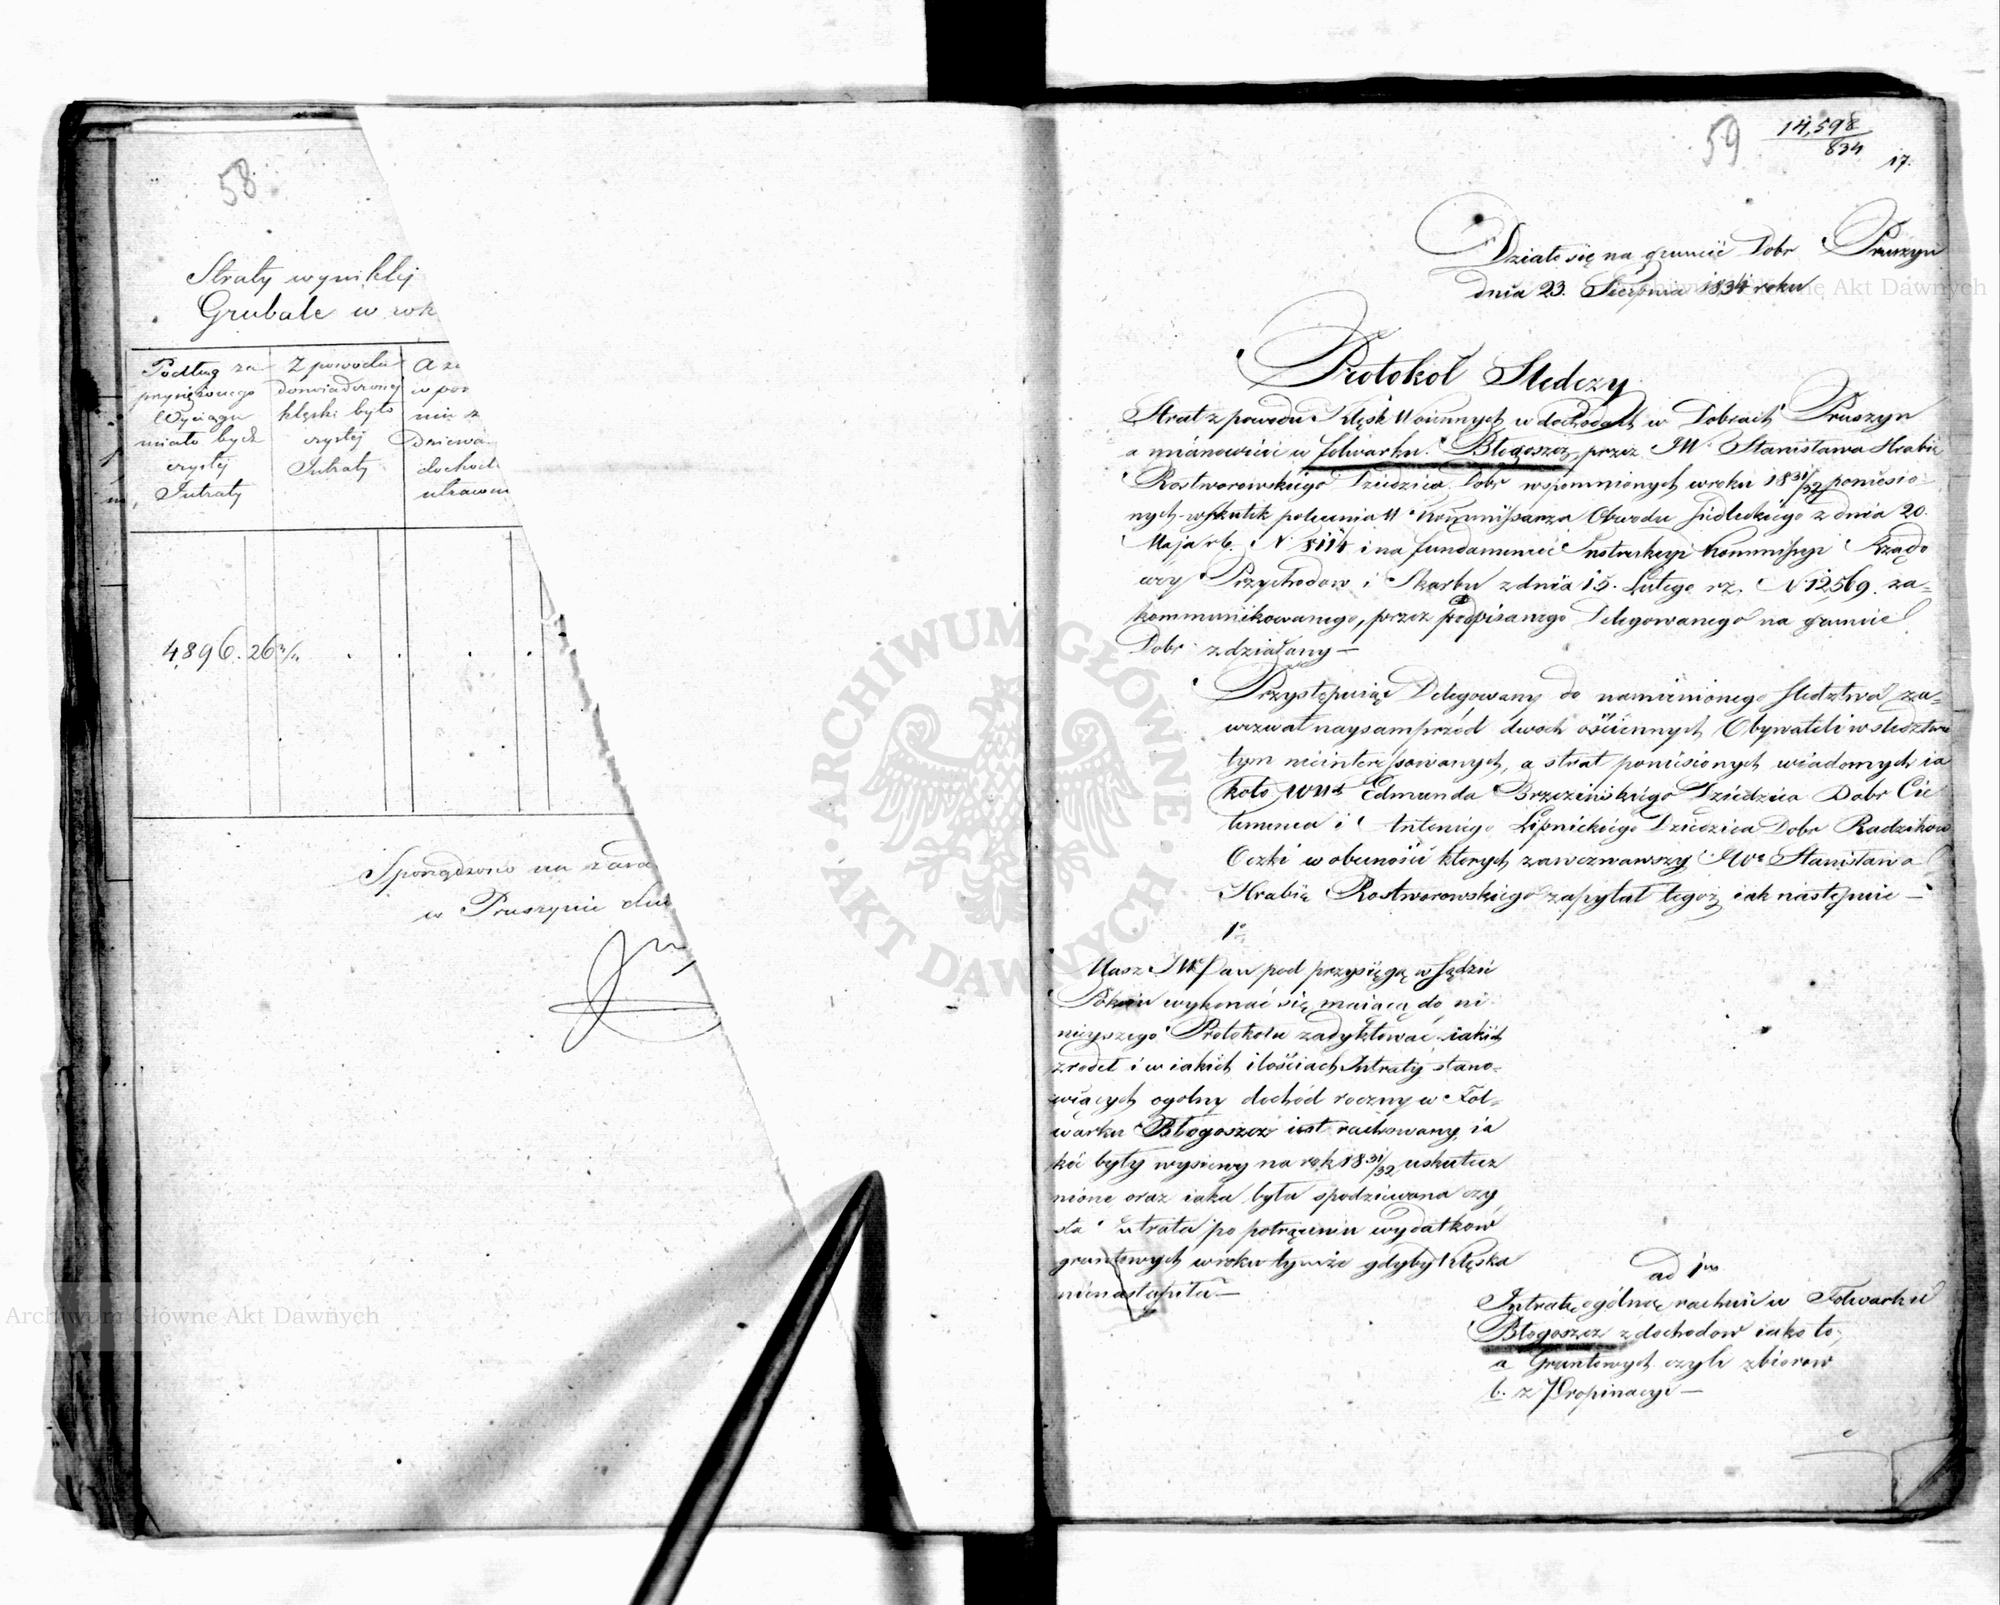 58
Straty wynikłej
Grubale w rok
Podług za
przysiężonego
Wyciągu
miało bydź
czystej
Intraty
Z powodu
doświadczonej
klęski było
czystej
Intraty
A ze
w por
nie z
Dziewa
dochod
utracon
4,896. 26
Sporządzono na zasa
w Pruszynie dnia
59
14,598
834
17.
Działo się na gruncie Dobr Pruszyn
dnia 23. Sierpnia 1834 roku
Protokół Sledczy
Strat z powodu Klęsk Woiennych w dochodach w Dobrach Pruszyn
a mianowicie w folwarku Błogoszcz, przez JW. Stanisława Hrabię
Rostworowskiego Dziedzica Dobr wspomnionych w roku 18 31/32 poniesio-
nych w skutek polecenia W Kommissarza Obwodu Siedleckiego z dnia 20.
Maja rb. N. 8114 i na fundamencie Instrukcyi Kommissyi Rządo
wey Przychodow i Skarbu z dnia 15. Lutego rz. N 12,569. za-
kommunikowanego, przez podpisanego Delegowanego na gruncie
Dobr zdziałany —
Przystępuiąc Delegowany do namienionego sledztwa za-
wezwał naysamprzód dwoch ościennych Obywateli w sledztwie
tym nieinteressowanych, a strat poniesionych wiadomych ia
koto WW Edmunda Brzezińskiego Dziedzica Dobr Cie
lemenca i Antoniego Lipnickiego Dziedzica Dobr Radzikow
Oczki w obecności ktorych zawezwawszy JWo Stanisława
Hrabię Rostworowskiego zapytał tegoż iak następuie —
1o
Masz JW Pan pod przysięgą w Sądzie
Pokoiu wykonać się maiącą do ni
nieyszego Protokołu zadyktować iakich
zrodeł i w iakich ilościach Intraty stano-
wiących ogolny dochód roczny w Fol-
warku Błogoszcz iest rachowany, ia
kie były wysiewy na rok 18 31/32 uskutecz
nione oraz iaka była spodziewana czy
sta intrata po potrąceniu wydatków
gruntowych w roku tymże gdyby klęska
nie nastąpiła —
ad 1m
Intratę ogólną rachuie w Folwarku
Błogoszcz z dochodow iako to,
a Gruntowych czyli zbiorow
b. z Propinacyi —
ARCHIWUM GŁÓWNE AKT DAWNYCH
Archiwum Główne Akt Dawnych
Archiwum Główne Akt Dawnych